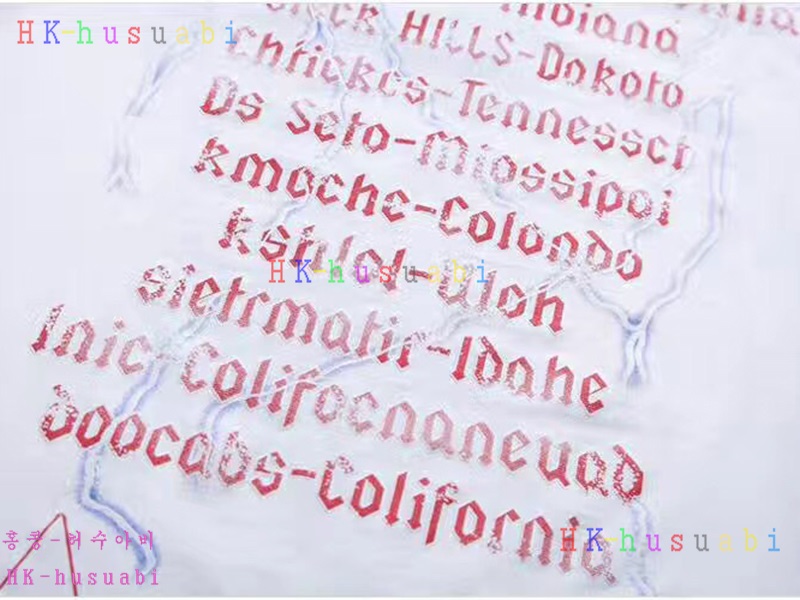 HK-husuabi
Indiana
HILLS-Dakoto
Chrickcs-Tennessct
Ds Seto-Miossipoi
kmoche-Colondo
HK-husuabi
sietrmatir-Idahe
lnic-Colifocnaneuad
doocabs-Colifornic
HK-husuabi
홍콩-허수아비
HK-husuabi